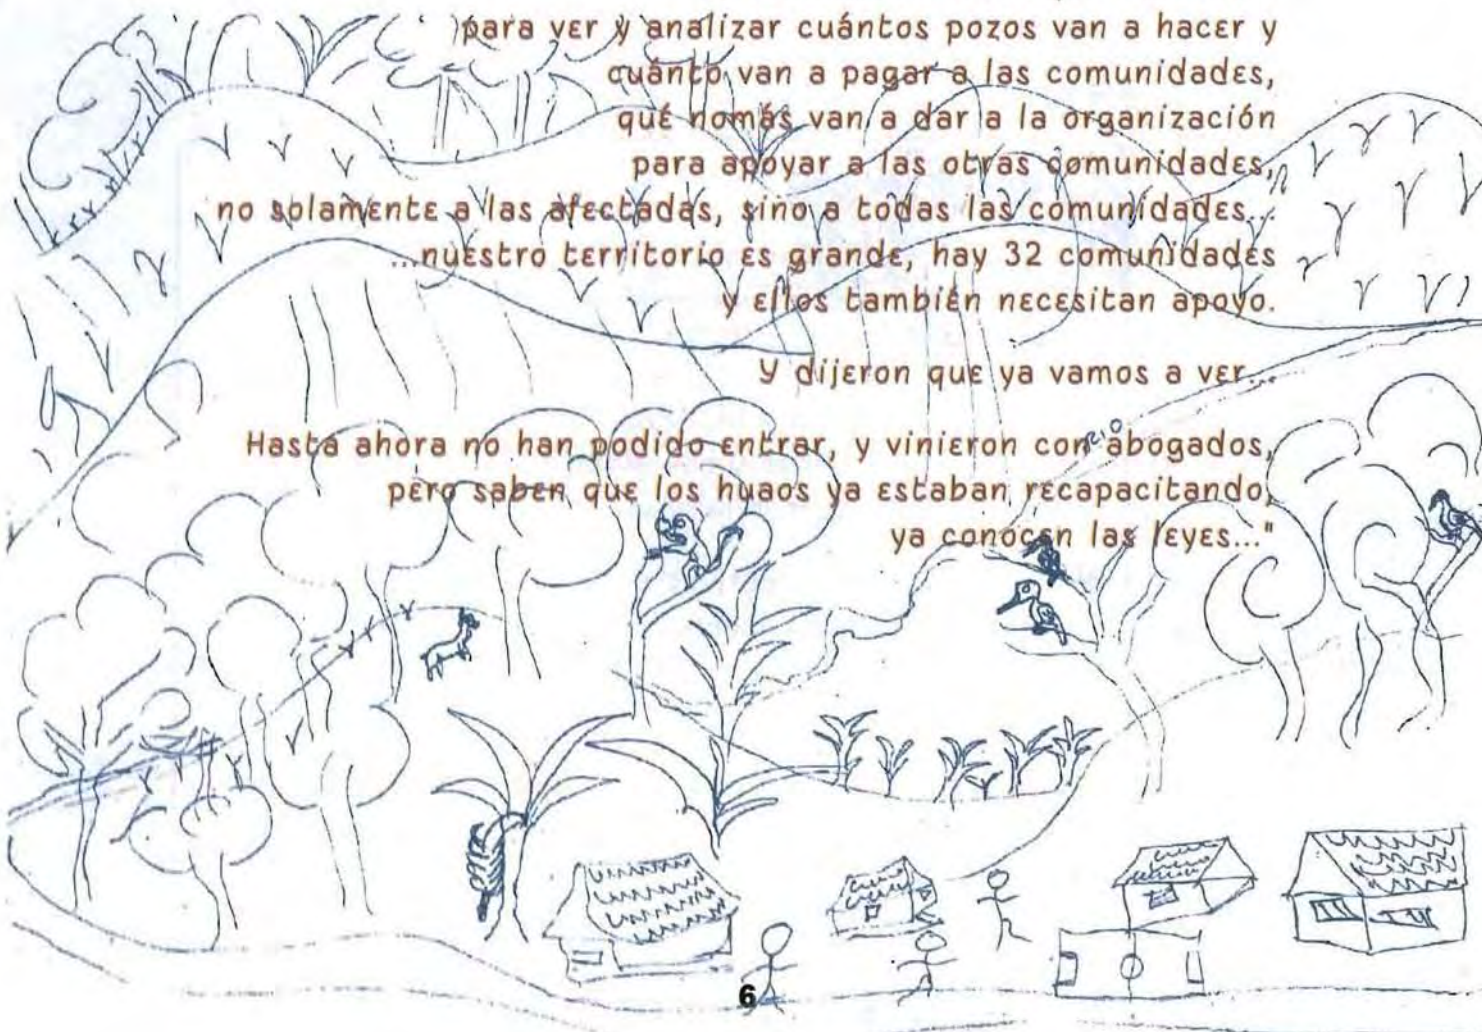 para ver y analizar cuántos pozos van a hacer y
cuánto van a pagar a las comunidades,
qué nomás van a dar a la organización
para apoyar a las otras comunidades,
no solamente a las afectadas, sino a todas las comunidades...
...nuestro territorio es grande, hay 32 comunidades
y ellos también necesitan apoyo.
Y dijeron que ya vamos a ver...
Hasta ahora no han podido entrar, y vinieron con abogados,
pero saben que los huaos ya estaban recapacitando,
ya conocen las leyes..."
RIO
6